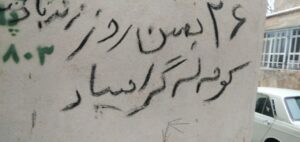 ۲۶ بهمن روز
کومه له گرامیباد
۸۰۳